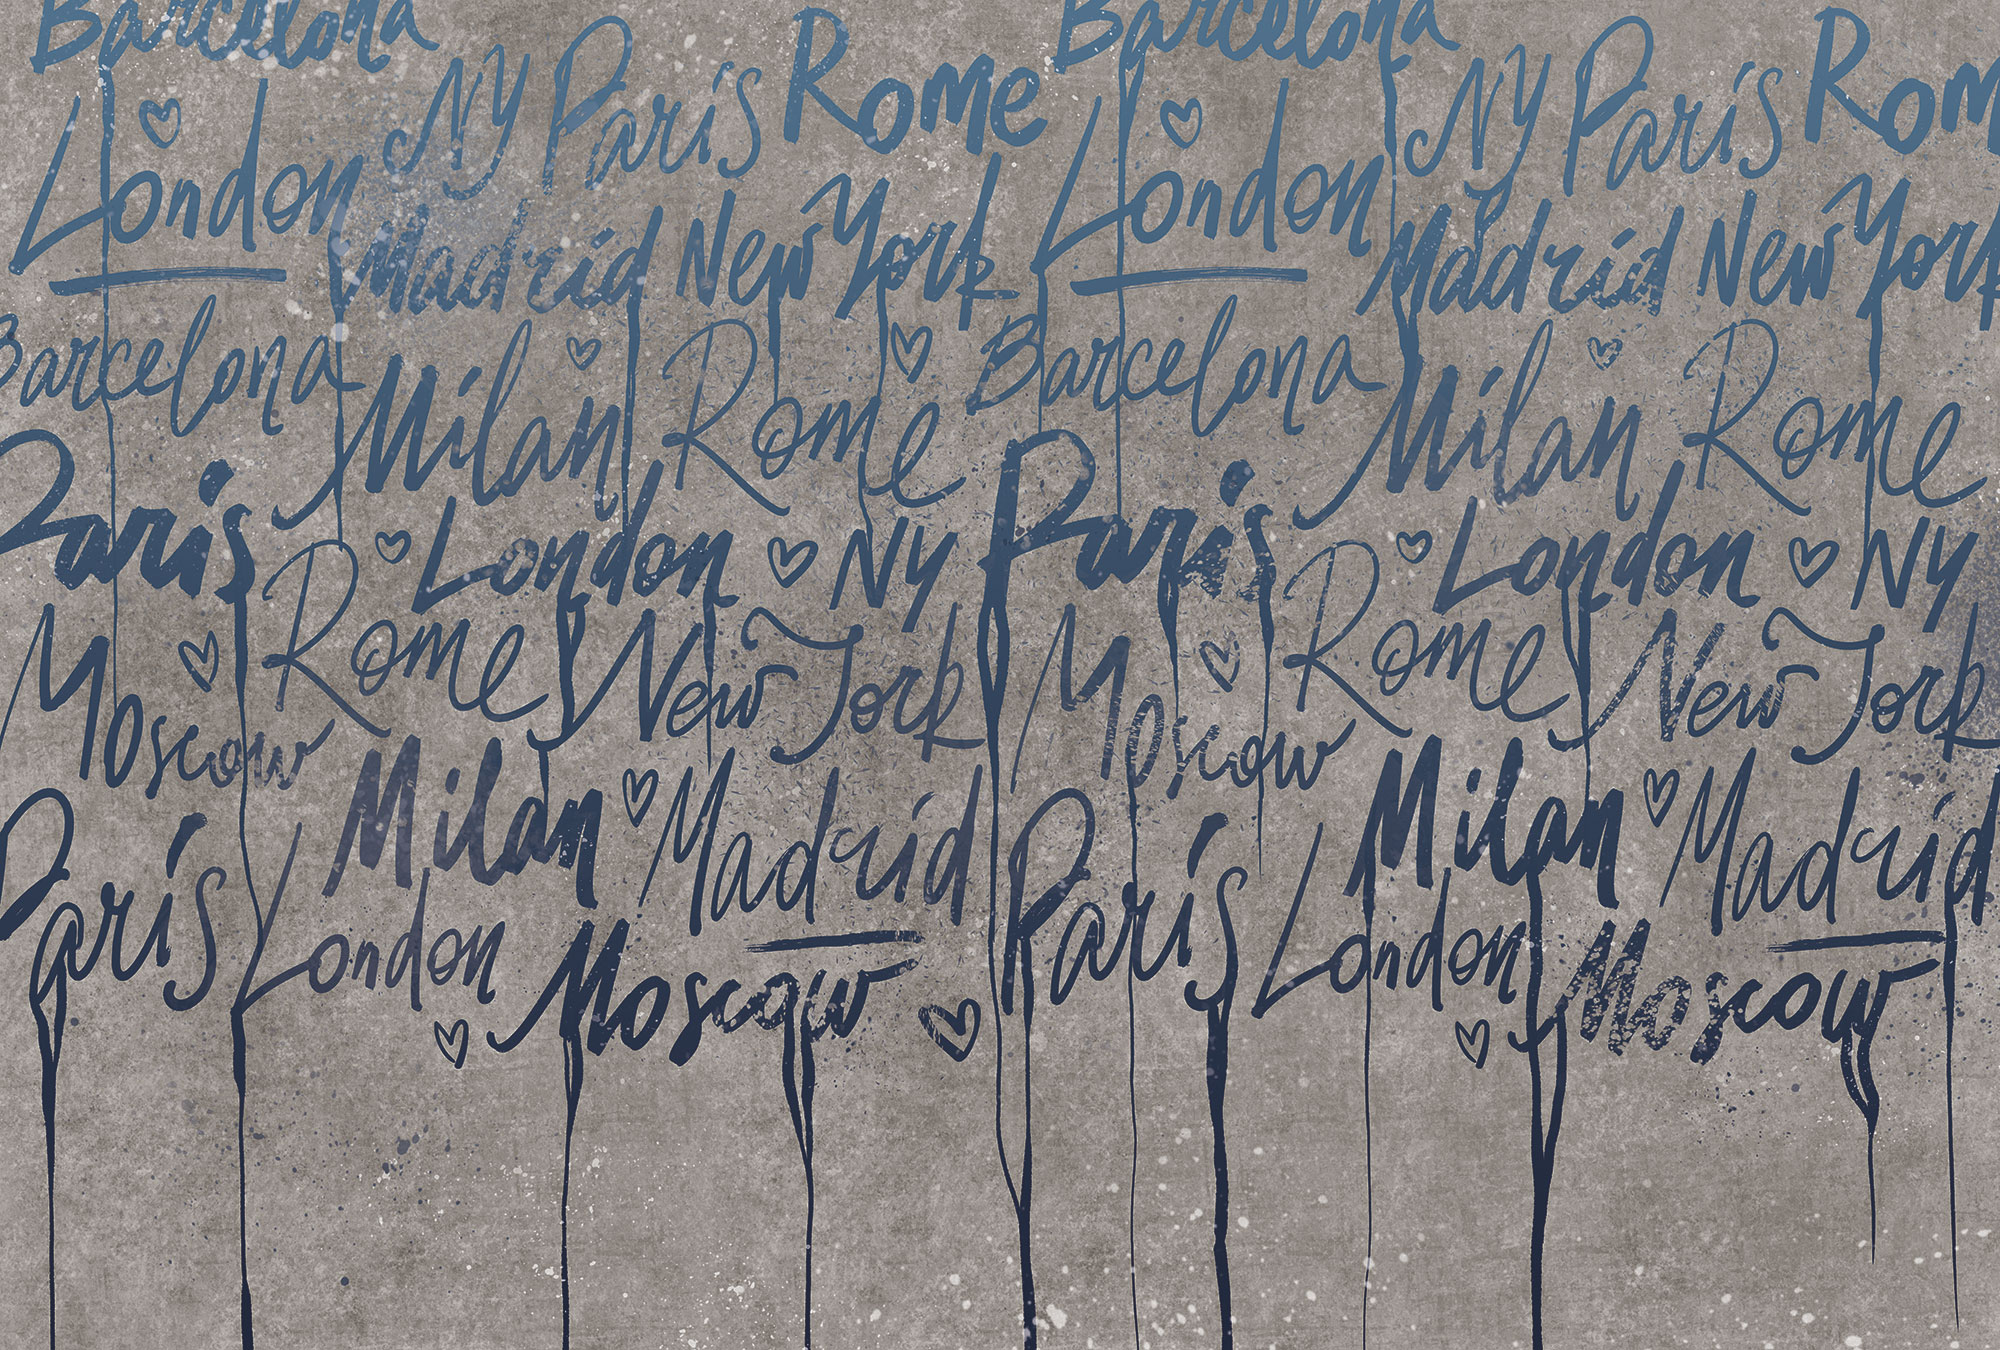 Barcelona Barcelona
NY Paris Rome NY Paris Rom
London London
Madrid New York Madrid New York
Barcelona Barcelona
Milan Rome Milan Rome
Paris London NY Paris London NY
Rome New York Rome New York
Moscow Moscow
Milan Madrid Milan Madrid
Paris London Paris London
Moscow Moscow